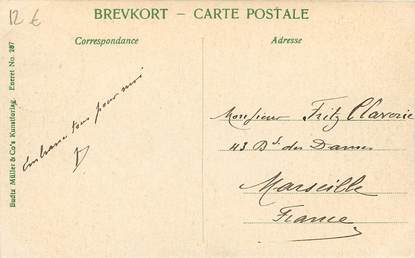 12 €
BREVKORT – CARTE POSTALE
Correspondance
Adresse
Budtz Müller & Co's Kunstforlag. Eneret No. 287
Embrasse tous pour moi
Monsieur Fritz Claverie
43 Bd. des Dames
Marseille
France